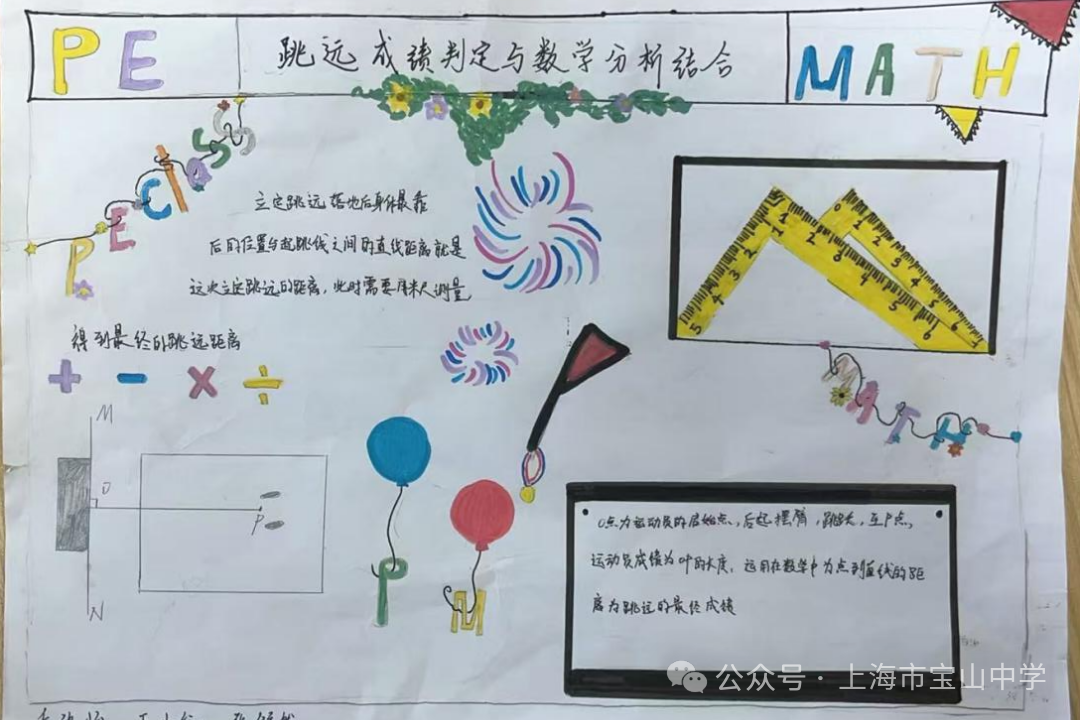 PE
跳远成绩判定与数学分析结合
MATH
PE class
立定跳远落地后身体最靠
后的位置与起跳线之间的直线距离就是
这次立定跳远的距离,此时需要用米尺测量
得到最终的跳远距离
+ - × ÷
M
O
P
N
P
M
1 2 3 4 5
1 2 3 4 5 6
1 2 3 4 5 6
MATH
O点为运动员的起始点,后起摆臂,跳出去,至P点,
运动员成绩为OP的长度,运用在数学中为点到直线的距
离为跳远的最终成绩
公众号·上海市宝山中学